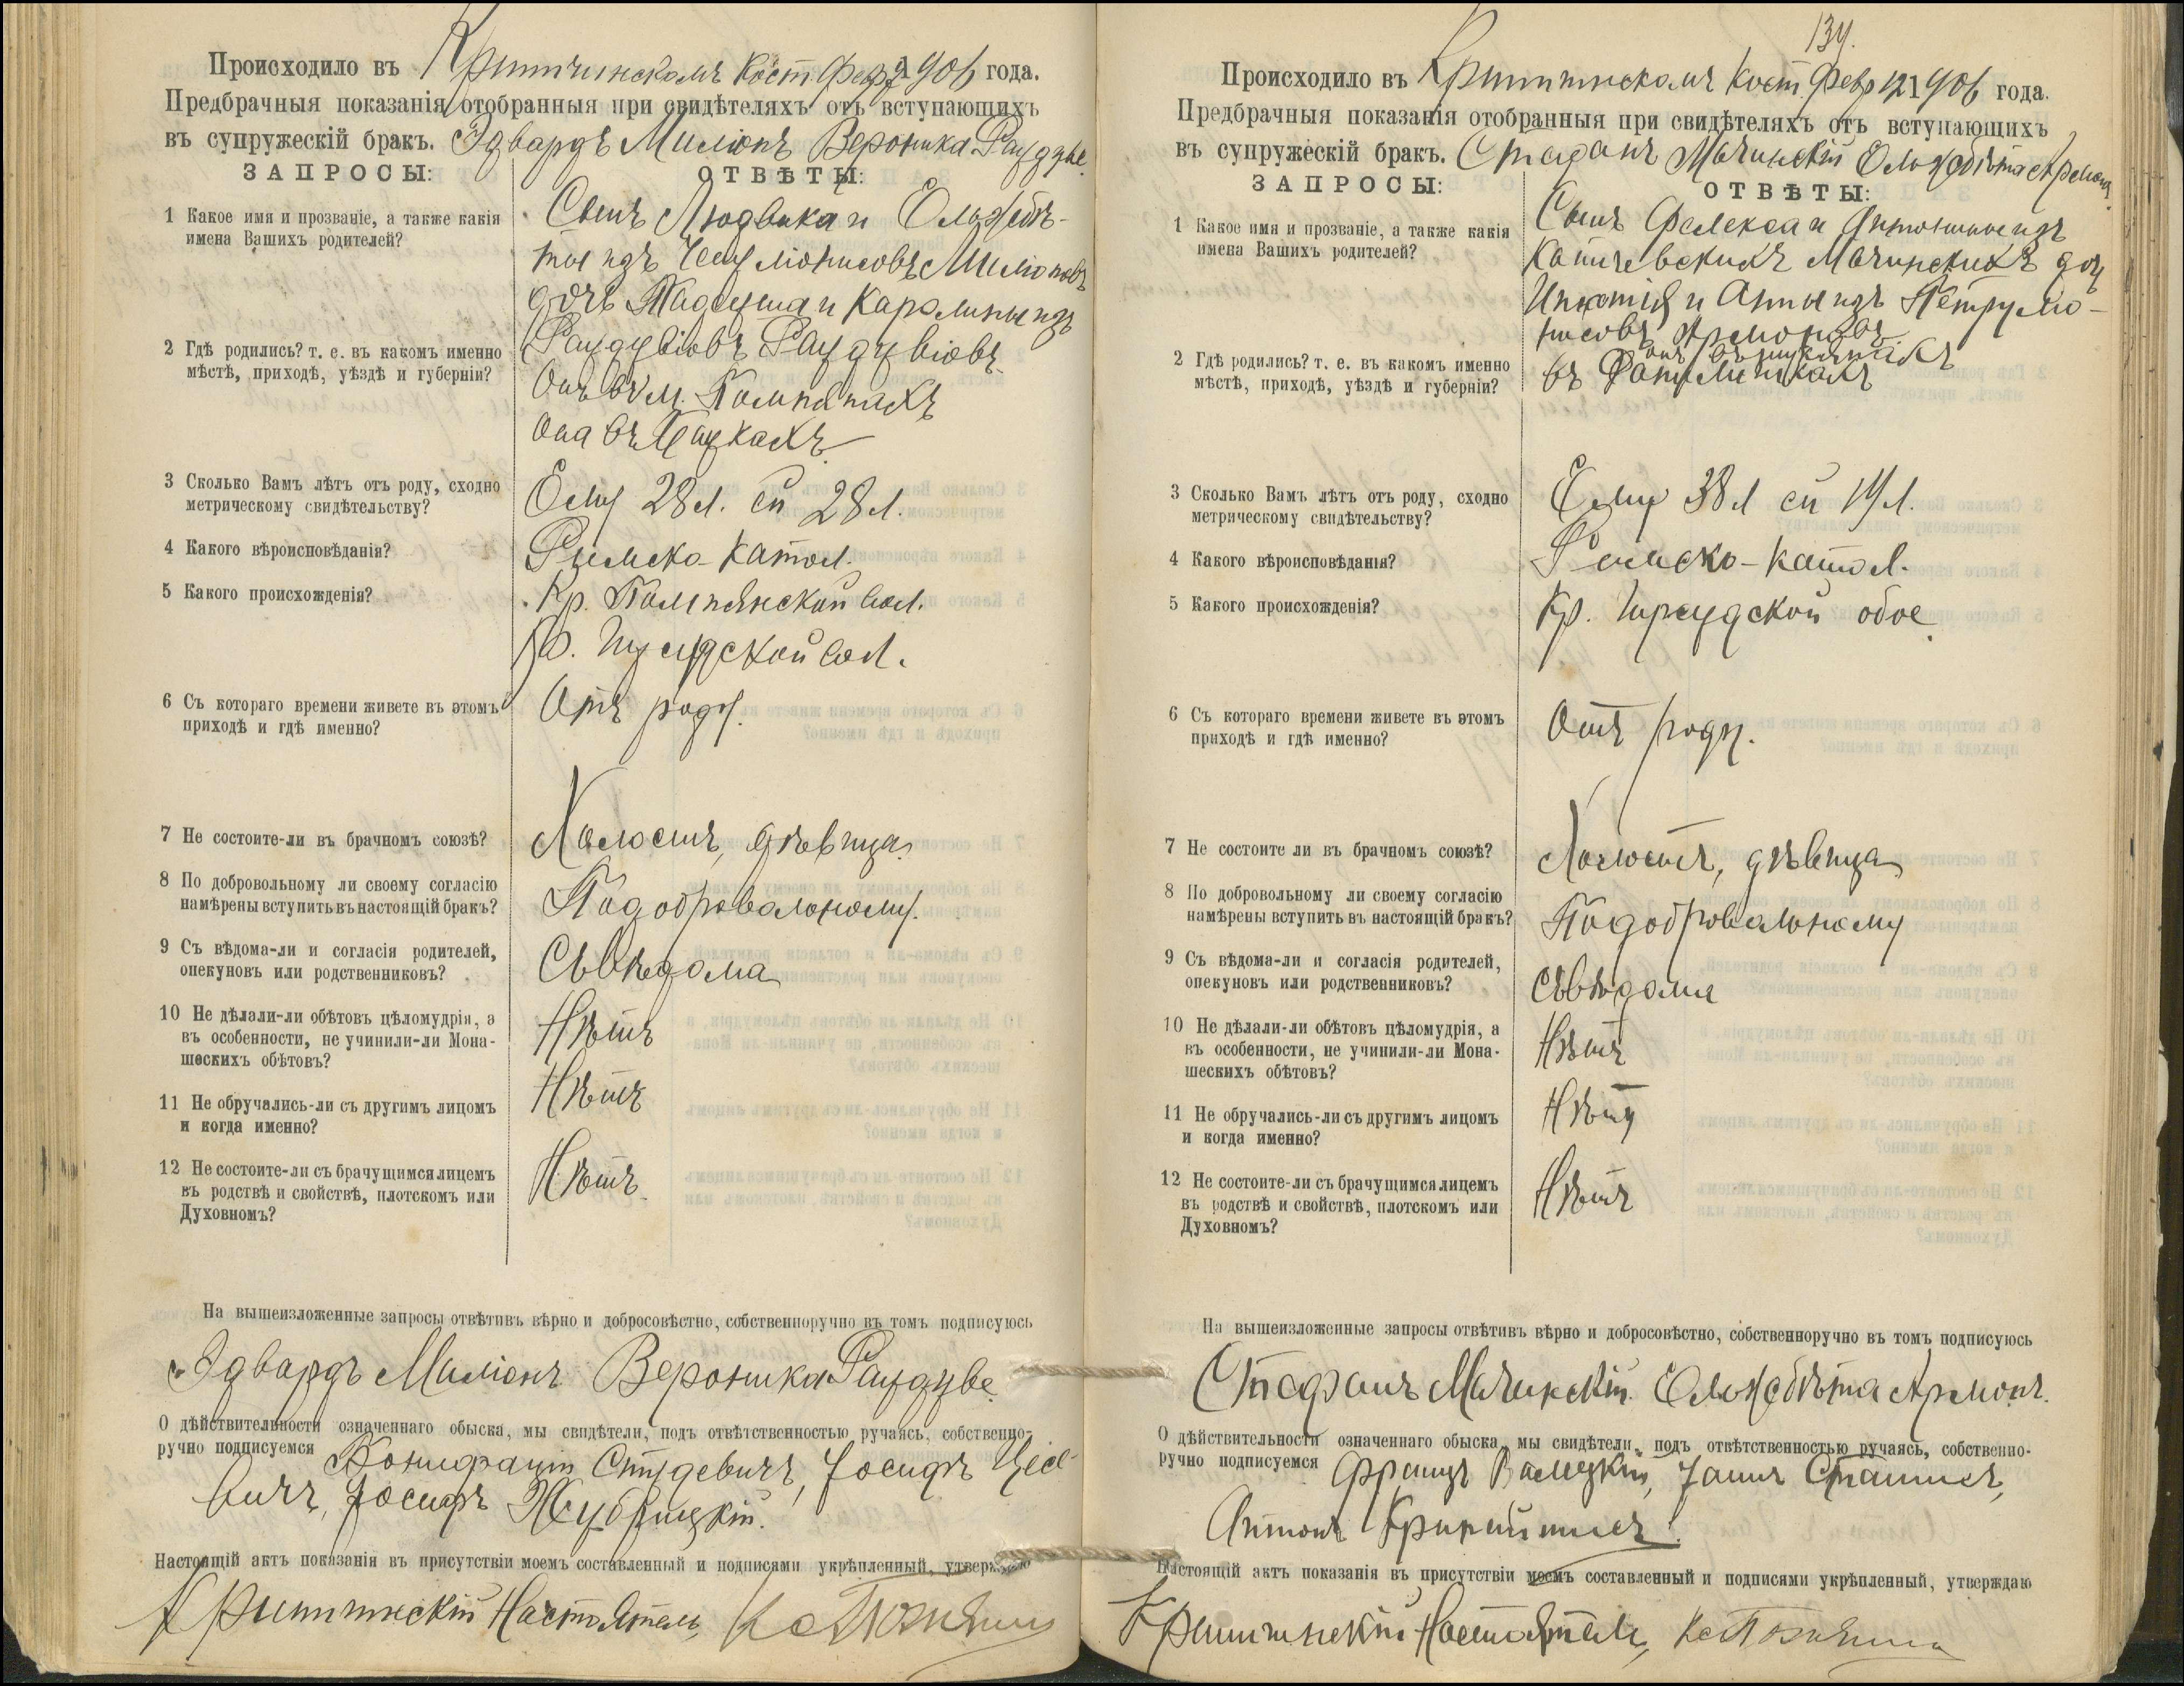 Происходило въ Криптинскомъ Кост. Февр. 1906 года.
Предбрачныя показанія отобранныя при свидѣтеляхъ отъ вступающихъ
въ супружескій бракъ. Эдвардъ Миліонъ Вероника Рауддве
ЗАПРОСЫ:
ОТВѢТЫ:
1 Какое имя и прозваніе, а также какія
имена Вашихъ родителей?
Сынъ Людвика и Ельжбѣ-
ты изъ Миліоновъ
дочь Тадеуша и Каролины изъ
2 Гдѣ родились? т. е. въ какомъ именно
мѣстѣ, приходѣ, уѣздѣ и губерніи?
Онъ въ м. Помпянахъ
Она въ
3 Сколько Вамъ лѣтъ отъ роду, сходно
метрическому свидѣтельству?
Ему 28 л. ей 28 л.
4 Какого вѣроисповѣданія?
Римско-катол.
5 Какого происхожденія?
Кр. Помпянской вол.
Кр. вол.
6 Съ котораго времени живете въ этомъ
приходѣ и гдѣ именно?
Отъ роду.
7 Не состоите-ли въ брачномъ союзѣ?
Холостъ, дѣвица
8 По добровольному ли своему согласію
намѣрены вступить въ настоящій бракъ?
По добровольному.
9 Съ вѣдома-ли и согласія родителей,
опекуновъ или родственниковъ?
Съ вѣдома
10 Не дѣлали-ли обѣтовъ цѣломудрія, а
въ особенности, не учинили-ли Мона-
шескихъ обѣтовъ?
Нѣтъ
11 Не обручались-ли съ другимъ лицомъ
и когда именно?
Нѣтъ
12 Не состоите-ли съ брачущимся лицемъ
въ родствѣ и свойствѣ, плотскомъ или
Духовномъ?
Нѣтъ.
На вышеизложенные запросы отвѣтивъ вѣрно и добросовѣстно, собственноручно въ томъ подписуюсь
Эдвардъ Миліонъ Вероника
О дѣйствительности означеннаго обыска, мы свидѣтели, подъ отвѣтственностью ручаясь, собственно-
ручно подписуемся Бонифацій Студевичъ, Іосифъ
вичъ, Іосифъ
Настоящій актъ показанія въ присутствіи моемъ составленный и подписями укрѣпленный, утверждаю
Настоятель
134.
Происходило въ Кост. Февр 12 1906 года.
Предбрачныя показанія отобранныя при свидѣтеляхъ отъ вступающихъ
въ супружескій бракъ. Стефанъ Мачинскій Ельжбѣта Армонъ
ЗАПРОСЫ:
ОТВѢТЫ:
1 Какое имя и прозваніе, а также какія
имена Вашихъ родителей?
Сынъ Феликса и Антонины изъ
Мачинскихъ доч
Игнатія и Анны изъ Петрулю-
нисовъ Армоновъ
2 Гдѣ родились? т. е. въ какомъ именно
мѣстѣ, приходѣ, уѣздѣ и губерніи?
3 Сколько Вамъ лѣтъ отъ роду, сходно
метрическому свидѣтельству?
Ему 38 л ей 19 л.
4 Какого вѣроисповѣданія?
Римско-катол.
5 Какого происхожденія?
Кр. обое
6 Съ котораго времени живете въ этомъ
приходѣ и гдѣ именно?
Отъ роду.
7 Не состоите ли въ брачномъ союзѣ?
Холостъ, дѣвица
8 По добровольному ли своему согласію
намѣрены вступить въ настоящій бракъ?
По добровольному
9 Съ вѣдома-ли и согласія родителей,
опекуновъ или родственниковъ?
Съ вѣдома
10 Не дѣлали-ли обѣтовъ цѣломудрія, а
въ особенности, не учинили-ли Мона-
шескихъ обѣтовъ?
Нѣтъ
11 Не обручались-ли съ другимъ лицомъ
и когда именно?
Нѣтъ
12 Не состоите-ли съ брачущимся лицемъ
въ родствѣ и свойствѣ, плотскомъ или
Духовномъ?
Нѣтъ
На вышеизложенные запросы отвѣтивъ вѣрно и добросовѣстно, собственноручно въ томъ подписуюсь
Стефанъ Мачинскій. Ельжбѣта Армонъ.
О дѣйствительности означеннаго обыска, мы свидѣтели, подъ отвѣтственностью ручаясь, собственно-
ручно подписуемся Францъ
Антонъ
Настоящій актъ показанія въ присутствіи моемъ составленный и подписями укрѣпленный, утверждаю
Настоятель,